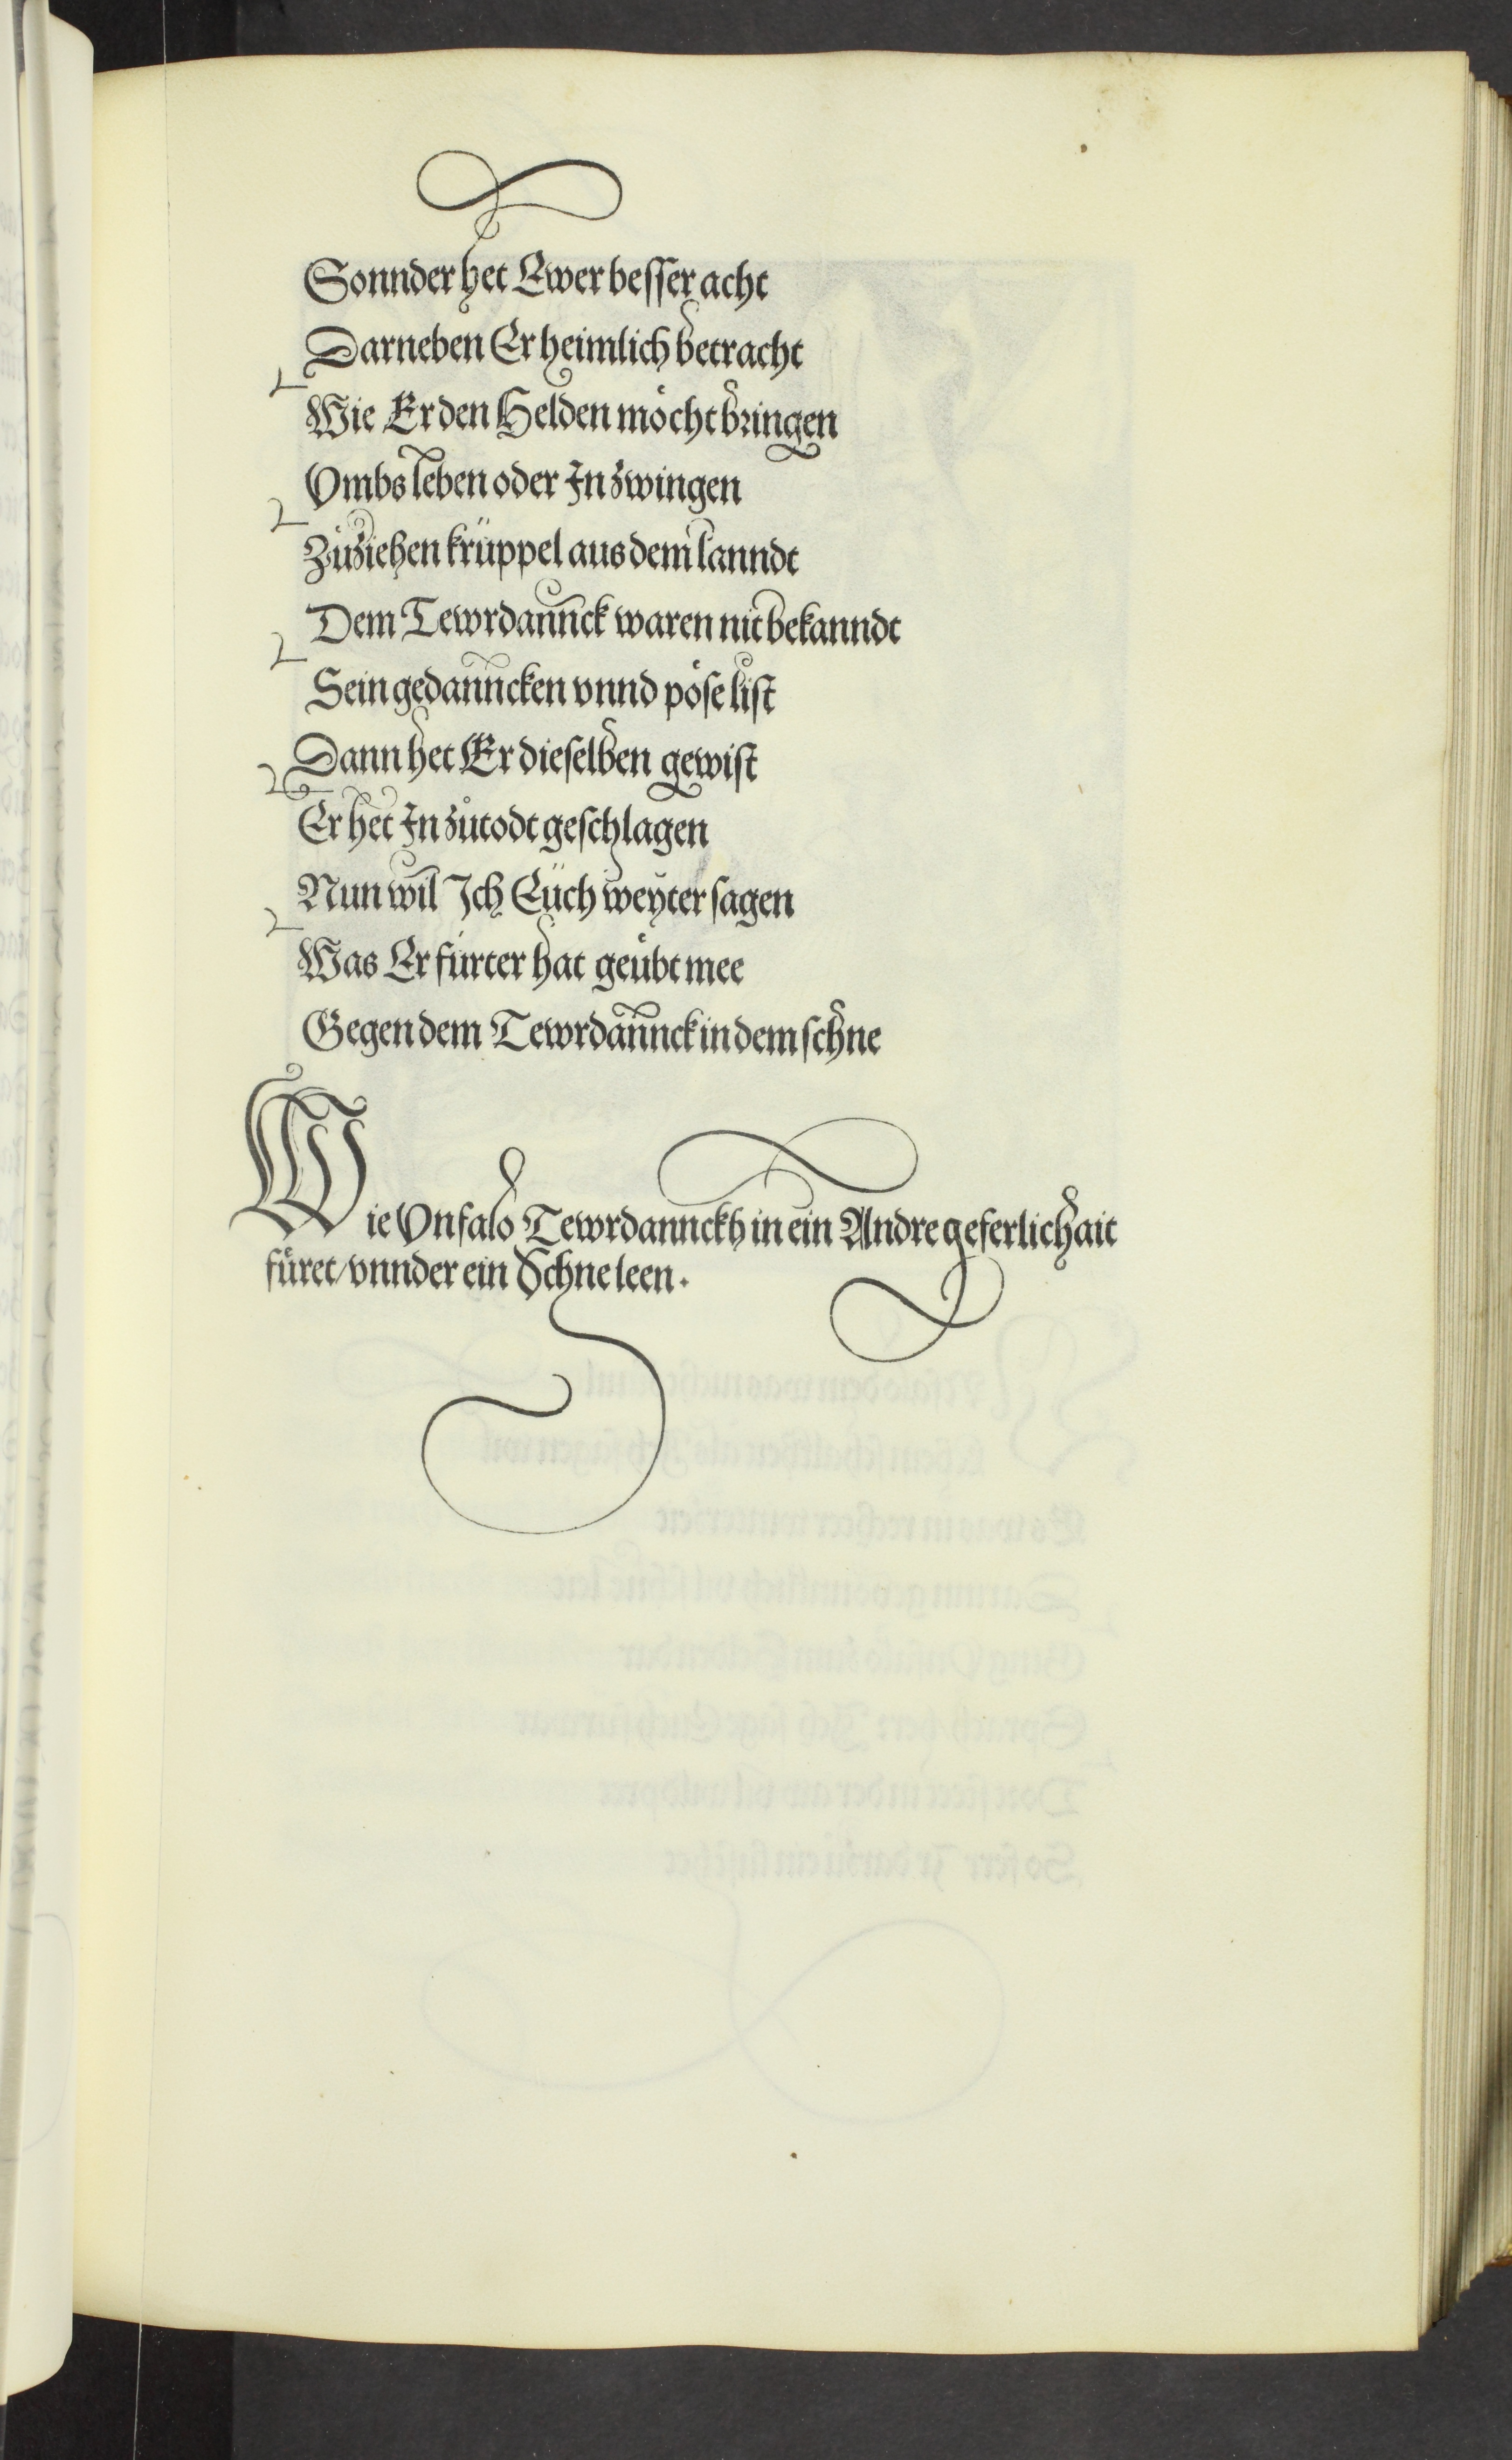 Sonnder het Ewer besser acht
Darneben Er heimlich betracht
Wie Er den Helden möcht bringen
Vmbs leben oder In zwingen
Zůziehen krüppel aus dem lanndt
Dem Tewrdannck waren nit bekanndt
Sein gedanncken vnnd pöse list
Dann het Er dieselben gewist
Er het In zůtodt geschlagen
Nun wil Ich Eüch weyter sagen
Was Er fürter hat geübt mee
Gegen dem Tewrdannck in dem schne
Wie Vnfalo Tewrdannckh in ein Andre geferlichait
füret/vnnder ein Schneleen.